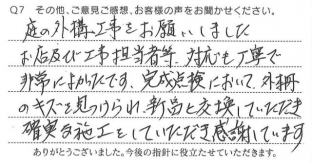 Q7 その他、ご意見ご感想、お客様の声をお聞かせください。
庭の外構工事をお願いしました
お店及び工事担当者等、対応も丁寧で
非常によかたです、完成点検において、外柵
のキズを見つけられ、新品と交換していただき
確実な施工をしていただき感謝しています
ありがとうございました。今後の指針に役立たせていただきます。